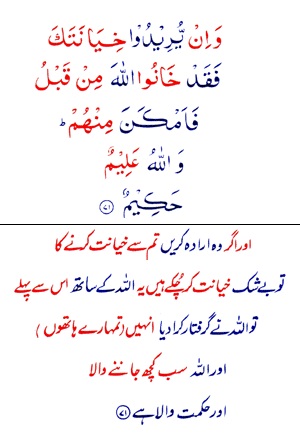 وَاِنْ يُّرِيْدُوْا خِيَانَتَكَ
فَقَدْ خَانُوا اللّٰهَ مِنْ قَبْلُ
فَاَمْكَنَ مِنْهُمْ ؕ
وَ اللّٰهُ عَلِيْمٌ
حَكِيْمٌ ﴿۷۱﴾
اور اگر وہ ارادہ کریں تم سے خیانت کرنے کا
تو بے شک خیانت کر چکے ہیں یہ اللہ کے ساتھ اس سے پہلے
تو اللہ نے گرفتار کرا دیا انہیں (تمہارے ہاتھوں)
اور اللہ سب کچھ جاننے والا
اور حکمت والا ہے ﴿۷۱﴾